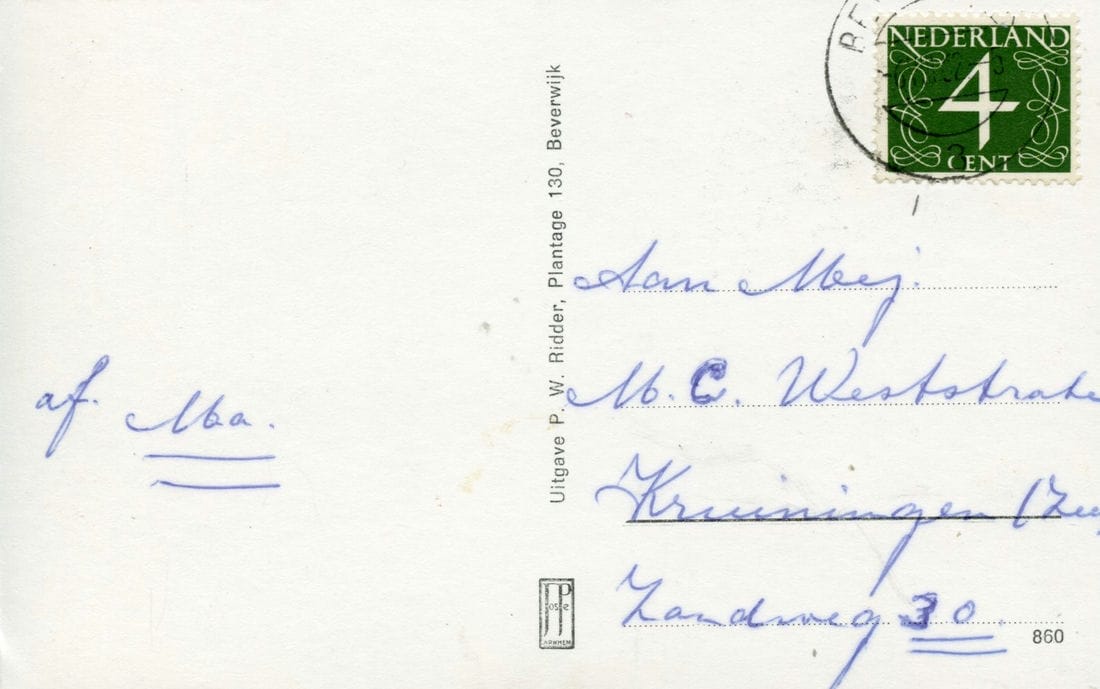 af. Maa.
Uitgave P. W. Ridder, Plantage 130, Beverwijk
NEDERLAND
4
CENT
3
Aan Mej.
M. C. Weststrate
Kruiningen (Zee
Zandweg 30.
860
ARNHEM